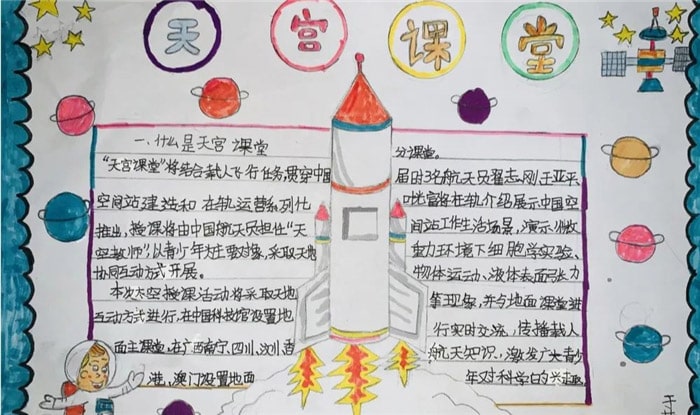 天宫课堂
一、什么是天宫课堂
“天宫课堂”将结合载人飞行任务贯穿中国
空间站建造和在轨运营系列化
推出，授课将由中国航天员担任“天
空教师”，以青少年为主要对象，采取天地
协同互动方式开展。
本次太空授课活动将采取天地
互动方式进行，在中国科技馆设置地
面主课堂，在广西南宁、四川、汶川、香
港，澳门设置地面
分课堂。
届时3名航天员翟志刚、王亚平、
叶光富将在轨介绍展示中国空
间站工作生活场景，演示微
重力环境下细胞学实验、
物体运动、液体表面张力
等现象，并与地面课堂进
行实时交流，传播载人
航天知识，激发广大青少
年对科学的兴趣